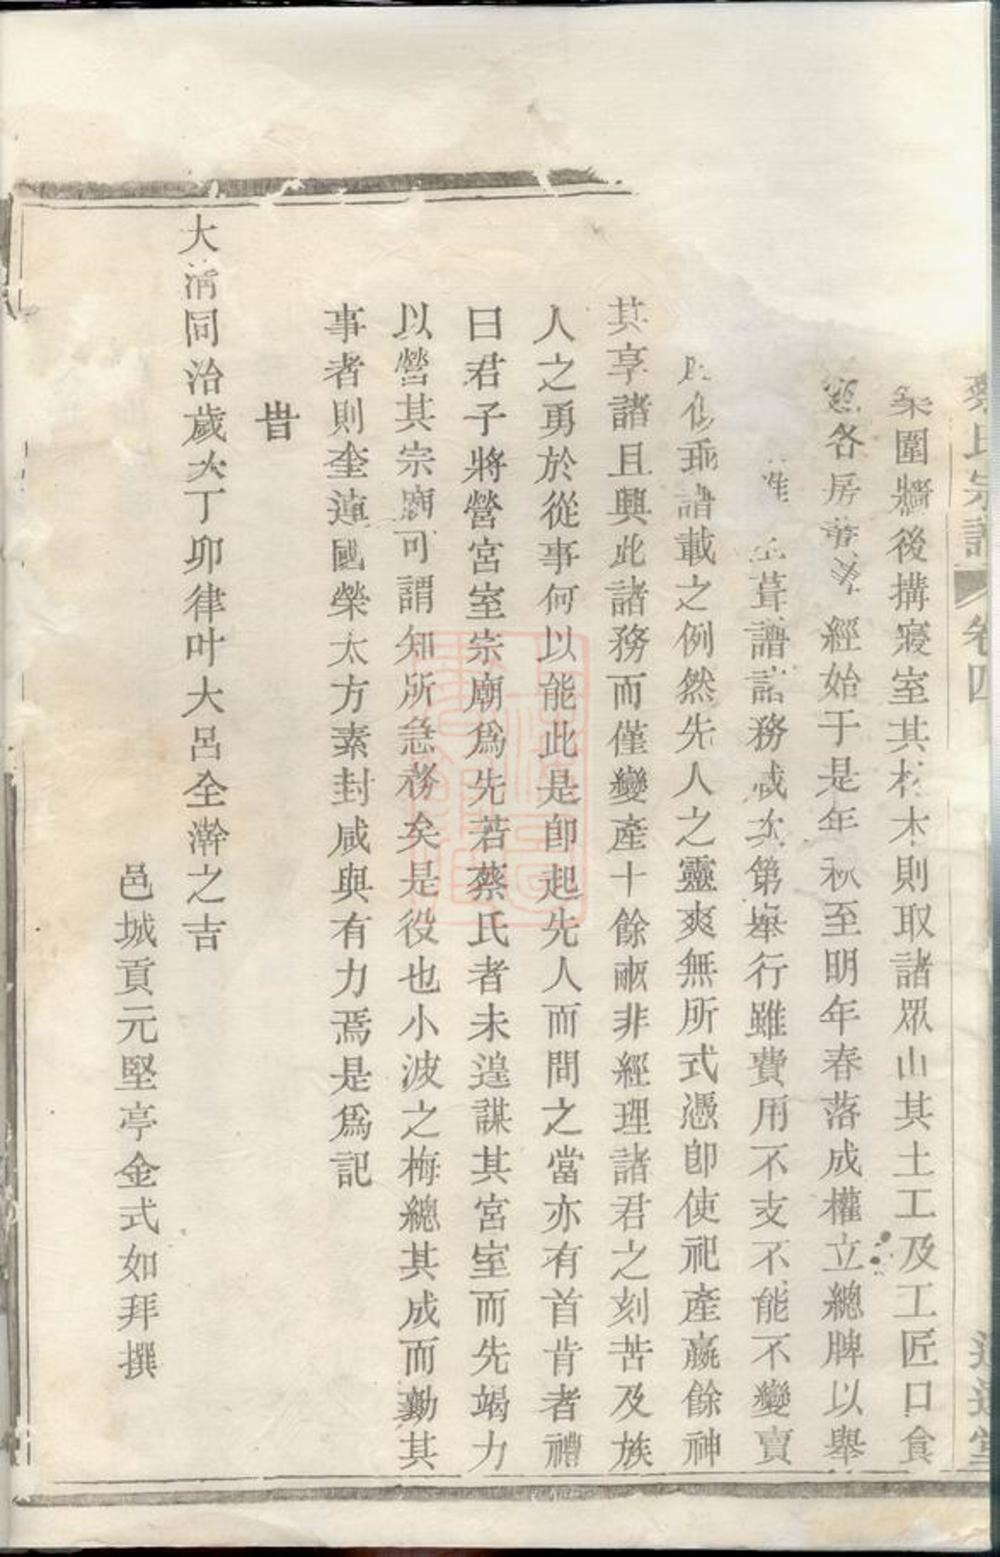 蔡氏宗譜 卷四
圍牆後搆寢室其木則取諸眾山其土工及工匠口食
各房經始于是年秋至明年春落成權立總牌以舉
葺譜諸務次第舉行雖費用不支不能不變賣
載之例然先人之靈爽無所式憑卽使祀產嬴餘神
其享諸且興此諸務而僅變產十餘畝非經理諸君之刻苦及族
人之勇於從事何以能此是卽起先人而問之當亦有首肯者禮
曰君子將營宮室宗廟爲先若蔡氏者未遑謀其宮室而先竭力
以營其宗廟可謂知所急務矣是役也小波之梅總其成而勷其
事者則奎蓮國榮太方素封咸與有力焉是爲記
旹
大清同治歲次丁卯律叶大呂全澣之吉
邑城貢元堅亭金式如拜撰